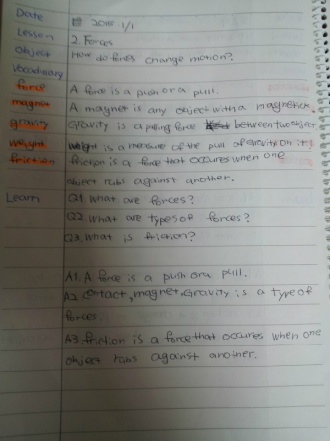 Date 2018 1/1
Lesson 2. Forces
Object How do forces change motion?
Vocabulary
force A force is a push or a pull.
magnet A magnet is any object with a magnetic
gravity Gravity is a pulling force between two object
weight weight is a measure of the pull of gravity on it
friction friction is a force that occures when one
object rubs against another.
Learn Q1 What are forces?
Q2 What are types of forces?
Q3. What is friction?
A1. A force is a push or a pull.
A2 contact, magnet, Gravity is a type of
forces.
A3. friction is a force that occures when one
object rubs against another.